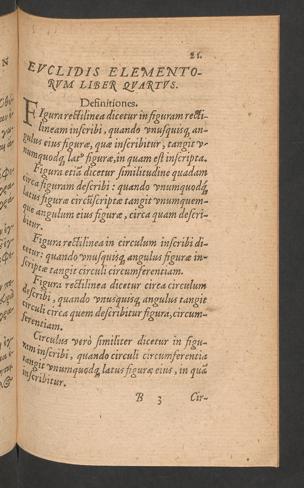 21.
EVCLIDIS ELEMENTO-
RVM LIBER QVARTVS.
Definitiones.
FIgura rectilinea dicetur in figuram recti-
lineam inscribi, quando vnusquisq, an-
gulus eius figuræ, quæ inscribitur, tangit v-
numquodq, latꝰ figuræ, in quam est inscripta.
Figura etiã dicetur similitudine quadam
circa figuram describi: quando vnumquodq,
latus figuræ circũscriptæ tangit vnumquem-
que angulum eius figuræ, circa quam descri-
bitur.
Figura rectilinea in circulum inscribi di-
cetur: quando vnusquisq, angulus figuræ in-
scriptæ tangit circuli circumferentiam.
Figura rectilinea dicetur circa circulum
describi, quando vnusquisq, angulus tangit
circuli circa quem describitur figura, circum-
ferentiam.
Circulus verò similiter dicetur in figu-
ram inscribi, quando circuli circumferentia
tangit vnumquodq, latus figuræ eius, in quã
inscribitur.
B 3 Cir-